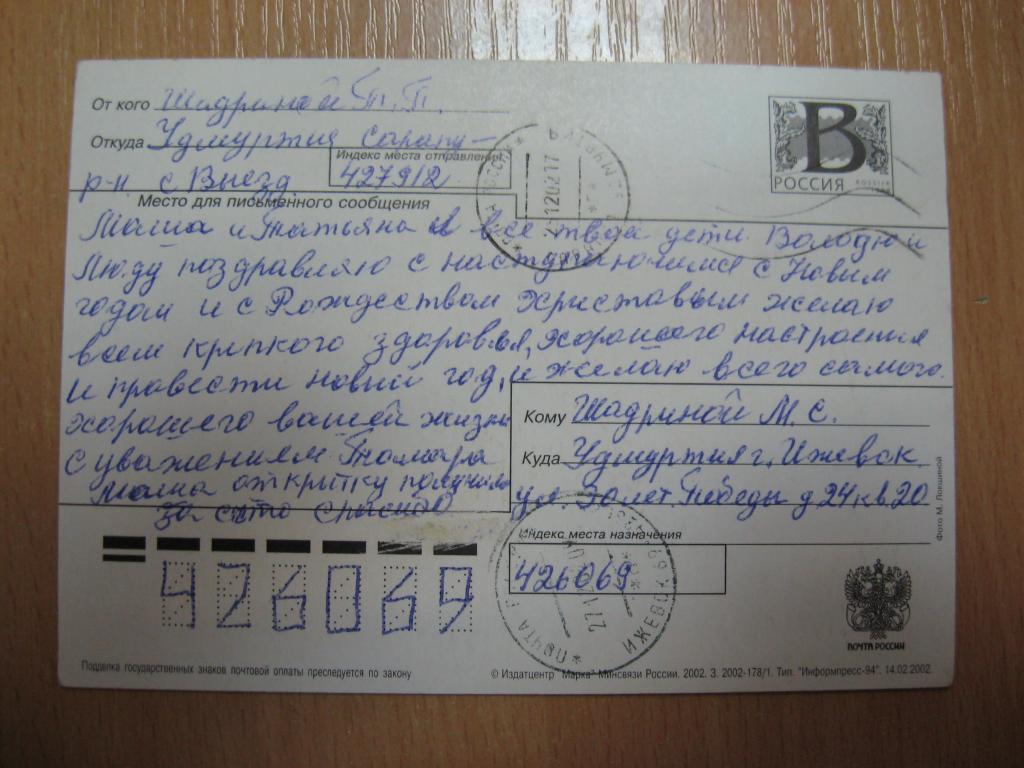 От кого Шадриной Т. П.
Откуда Удмуртия Сарапу-
Индекс места отправления
427912
р-н с Выезд
В
РОССИЯ ROSSIЯ
Место для письменного сообщения
Маша и Татьяна и все твои дети. Володю и
Люду поздравляю с наступающим с Новым
годом и с Рождеством Христавым желаю
всем крепкого здоровья, хорошего настроения
и правести новый год, и желаю всего самого
хорошего вашей жизни
с уважением Тамара
Маша открытку получила
за ето спасибо
Кому Шадриной М. С.
Куда Удмуртия г. Ижевск.
ул. 30 лет Победы д 24 кв. 20
Индекс места назначения
426069
426069
ИЖЕВСК
ПОЧТА РОССИИ
Фото М. Ловшиной
Подделка государственных знаков почтовой оплаты преследуется по закону
© Издатцентр "Марка" Минсвязи России. 2002. З. 2002-178/1. Тип. "Информпресс-94". 14.02.2002.